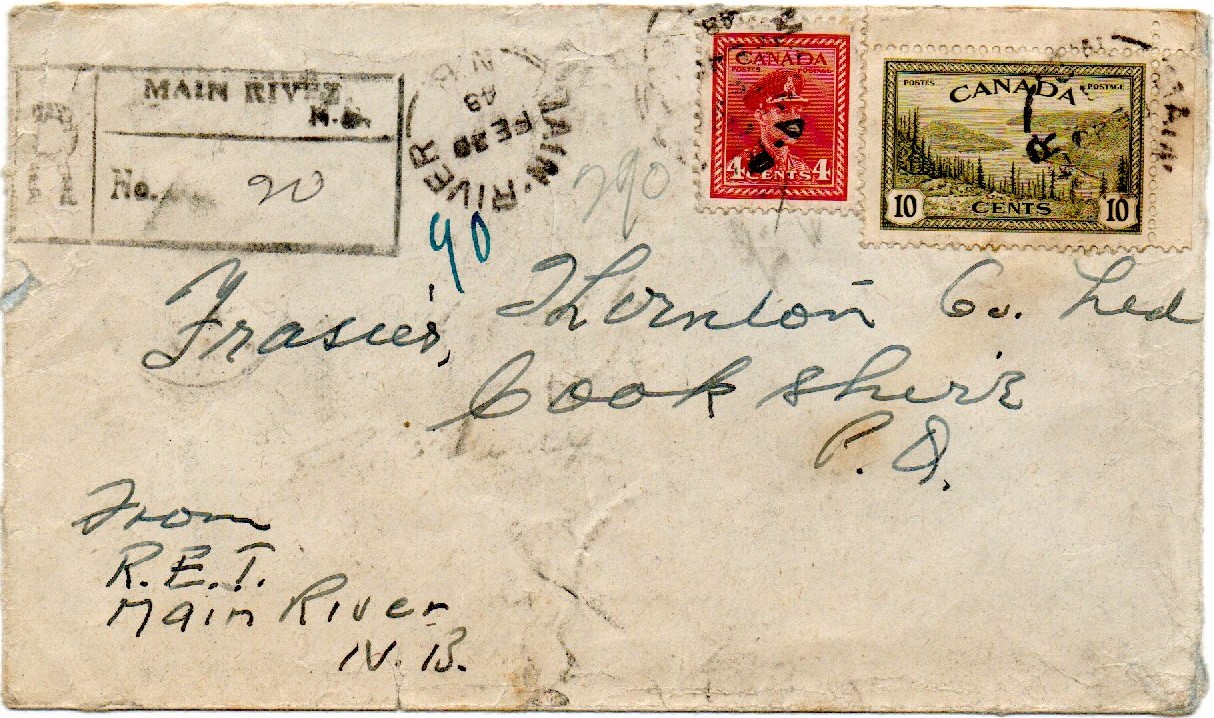 MAIN RIVER
N.B.
No. 20
MAIN RIVER
FE 28
48
N.B.
90
290
CANADA
POSTES POSTAGE
4 CENTS 4
POSTES CANADA POSTAGE
10 CENTS 10
Frasier, Thornton Co. Ltd
Cookshire
P.Q.
From
R.E.T.
Main River
N.B.